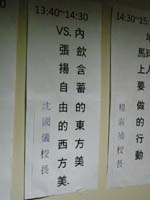 13:40~14:30
內飲含蓄的東方美
VS. 張揚自由的西方美.
沈國儀校長
14:30~15
地球人
馬上要做的行動
校長